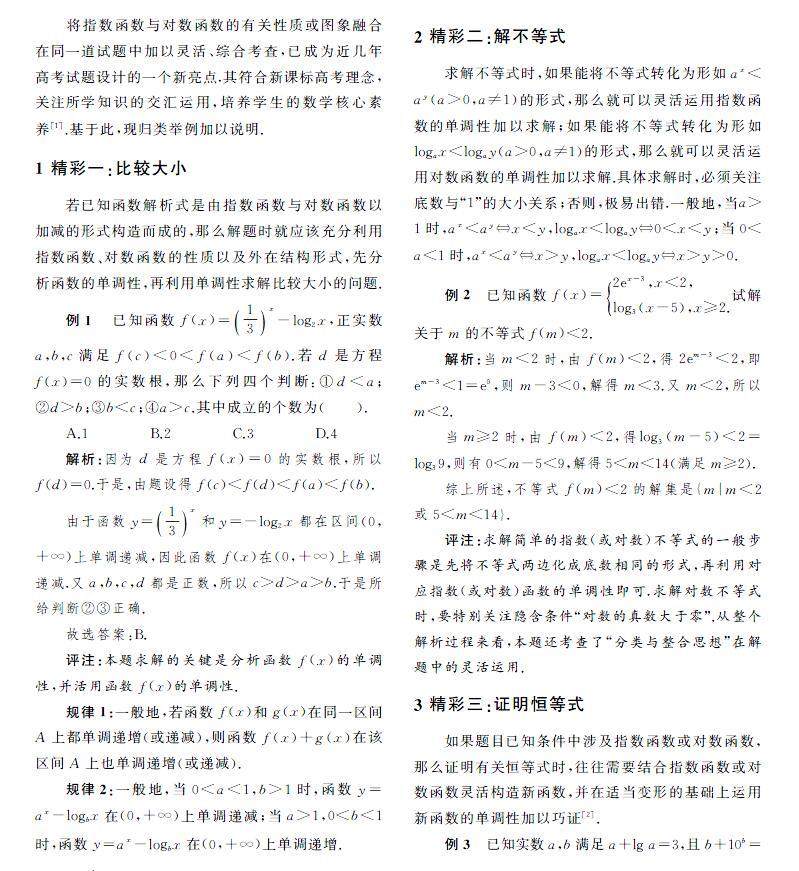 将指数函数与对数函数的有关性质或图象融合
在同一道试题中加以灵活、综合考查,已成为近几年
高考试题设计的一个新亮点.其符合新课标高考理念,
关注所学知识的交汇运用,培养学生的数学核心素
养[1].基于此,现归类举例加以说明.
1 精彩一:比较大小
若已知函数解析式是由指数函数与对数函数以
加减的形式构造而成的,那么解题时就应该充分利用
指数函数、对数函数的性质以及外在结构形式,先分
析函数的单调性,再利用单调性求解比较大小的问题.
例 1 已知函数 f(x)=(1/3)^x−log₂x,正实数
a,b,c 满足 f(c)<0<f(a)<f(b).若 d 是方程
f(x)=0 的实数根,那么下列四个判断:①d<a;
②d>b;③b<c;④a>c.其中成立的个数为( ).
A.1 B.2 C.3 D.4
解析:因为 d 是方程 f(x)=0 的实数根,所以
f(d)=0.于是,由题设得 f(c)<f(d)<f(a)<f(b).
由于函数 y=(1/3)^x 和 y=−log₂x 都在区间(0,
+∞)上单调递减,因此函数 f(x)在(0,+∞)上单调
递减.又 a,b,c,d 都是正数,所以 c>d>a>b.于是所
给判断②③正确.
故选答案:B.
评注:本题求解的关键是分析函数 f(x)的单调
性,并活用函数 f(x)的单调性.
规律 1:一般地,若函数 f(x)和 g(x)在同一区间
A 上都单调递增(或递减),则函数 f(x)+g(x)在该
区间 A 上也单调递增(或递减).
规律 2:一般地,当 0<a<1,b>1 时,函数 y=
a^x−log_b x 在(0,+∞)上单调递减;当 a>1,0<b<1
时,函数 y=a^x−log_b x 在(0,+∞)上单调递增.
2 精彩二:解不等式
求解不等式时,如果能将不等式转化为形如 a^x<
a^y(a>0,a≠1)的形式,那么就可以灵活运用指数函
数的单调性加以求解;如果能将不等式转化为形如
log_a x<log_a y(a>0,a≠1)的形式,那么就可以灵活运
用对数函数的单调性加以求解.具体求解时,必须关注
底数与“1”的大小关系;否则,极易出错.一般地,当a>
1 时,a^x<a^y⇔x<y,log_a x<log_a y⇔0<x<y;当 0<
a<1 时,a^x<a^y⇔x>y,log_a x<log_a y⇔x>y>0.
例 2 已知函数 f(x)={2e^(x−3),x<2, log₃(x−5),x≥2.试解
关于 m 的不等式 f(m)<2.
解析:当 m<2 时,由 f(m)<2,得 2e^(m−3)<2,即
e^(m−3)<1=e⁰,则 m−3<0,解得 m<3.又 m<2,所以
m<2.
当 m≥2 时,由 f(m)<2,得log₃(m−5)<2=
log₃9,则有 0<m−5<9,解得 5<m<14(满足 m≥2).
综上所述,不等式 f(m)<2 的解集是{m|m<2
或 5<m<14}.
评注:求解简单的指数(或对数)不等式的一般步
骤是先将不等式两边化成底数相同的形式,再利用对
应指数(或对数)函数的单调性即可.求解对数不等式
时,要特别关注隐含条件“对数的真数大于零”.从整个
解析过程来看,本题还考查了“分类与整合思想”在解
题中的灵活运用.
3 精彩三:证明恒等式
如果题目已知条件中涉及指数函数或对数函数,
那么证明有关恒等式时,往往需要结合指数函数或对
数函数灵活构造新函数,并在适当变形的基础上运用
新函数的单调性加以巧证[2].
例 3 已知实数 a,b 满足 a+lg a=3,且 b+10^b=